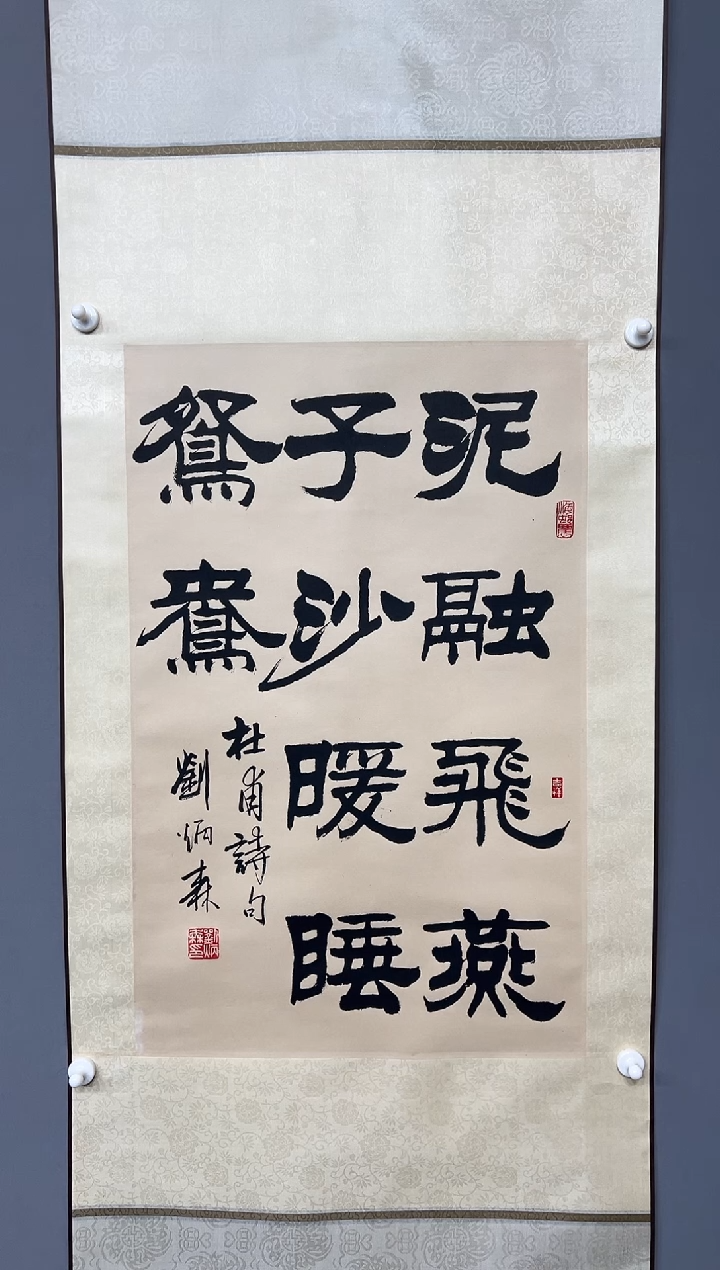 泥融飛燕
子沙暖睡
鴛鴦
杜甫詩句
劉炳森